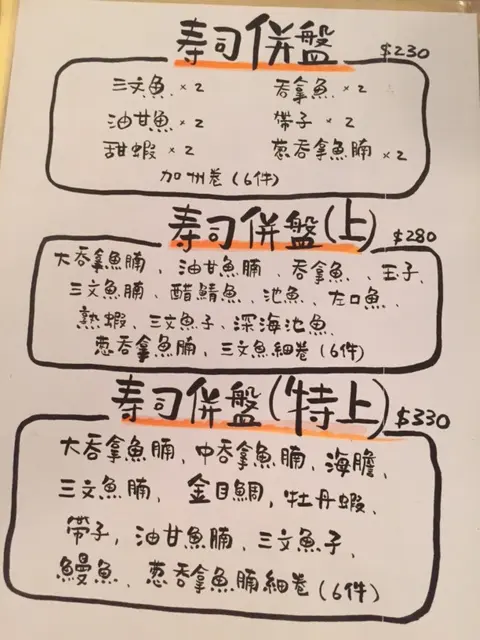 寿司併盤 $230
三文魚 × 2 吞拿魚 × 2
油甘魚 × 2 帶子 × 2
甜蝦 × 2 葱吞拿魚腩 × 2
加州卷 (6件)
寿司併盤(上) $280
大吞拿魚腩、油甘魚腩、吞拿魚、玉子、
三文魚腩、醋鯖魚、池魚、左口魚、
熟蝦、三文魚子、深海池魚、
葱吞拿魚腩、三文魚細卷 (6件)
寿司併盤(特上) $330
大吞拿魚腩、中吞拿魚腩、海膽、
三文魚腩、金目鯛、牡丹蝦、
帶子，油甘魚腩、三文魚子、
鰻魚、葱吞拿魚腩細卷 (6件)